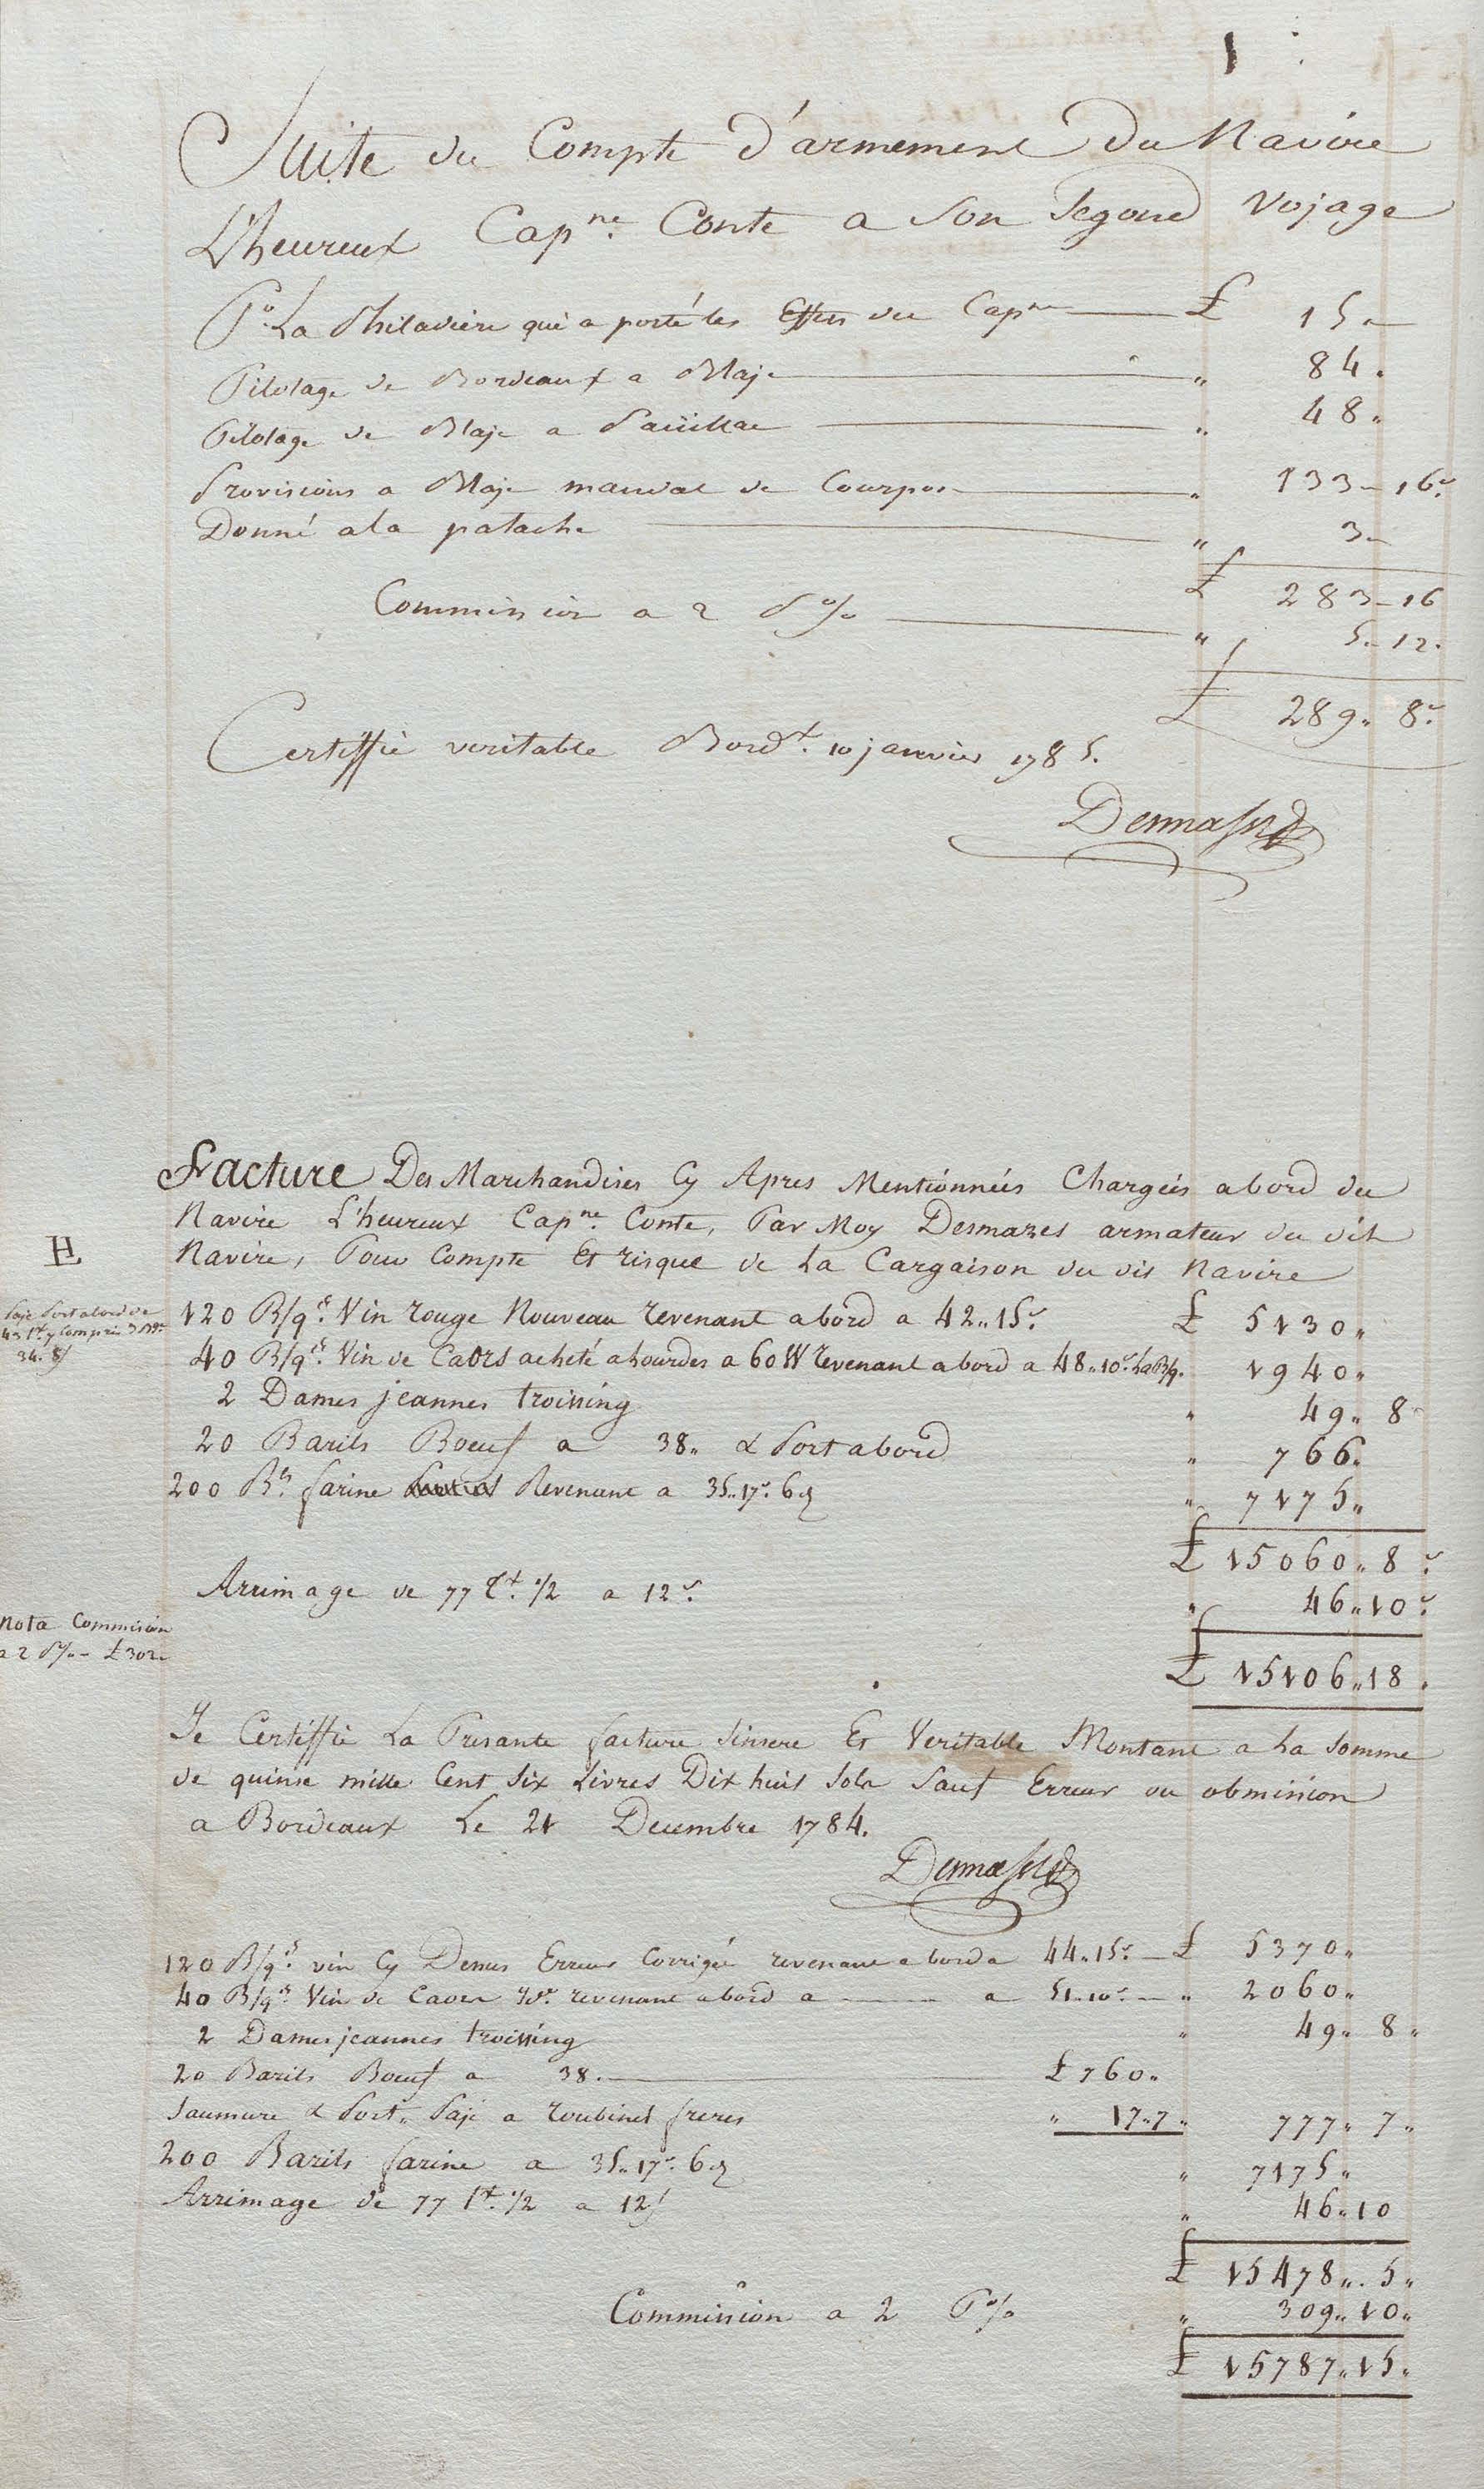 1
Suite du Compte d'armement du Navire
L'heureux Cap.ne Conte a Son Segond Voyage
P.r La qui a porté les Effets du Cap.ne £ 15 "
Pilotage de Bordeaux a Blaje " 84 .
Pilotage de Blaje a Paüillac " 48 "
Provisions a Blaje mandat de " 133 - 16 s
Donné a la patache " 3 -
£ 283 - 16
Commission a 2 P % " 5 - 12 .
£ 289 " 8 s
Certiffié veritable Bord.x 10 janvier 1785.
Desmazes
Facture Des Marchandises Cy Apres Mentionnées Chargées abord du
Navire L'heureux Cap.ne Conte, Par Moy Desmazes armateur du dit
Navire, Pour Compte Et risque de La Cargaison du dit Navire
H
Paje Port abord de
43 t.x y Compris 3 B/q.
34. 8 s
120 B/q.s Vin rouge Nouveau revenant abord a 42 " 15 s £ 5130 "
40 B/q.s Vin de Caors acheté a hourdes a 60 W revenant abord a 48 " 10 s La B/q. 1940 "
2 Dames jeannes troissing " 49 " 8
20 Barils Boeuf a 38 " & Port abord " 766 "
200 B.s farine Revenant a 35 " 17 s 6 d " 7175 "
£ 15060 " 8 s
Arrimage de 77 t.x 1/2 a 12 s " 46 " 10 s
Nota Commission
a 2 P% - £ 302 -
£ 15106 " 18 .
Je Certiffie La Presante facture Sinsere Et Veritable Montant a La Somme
de quinse mille Cent Six Livres Dix huit Sols Sauf Erreur ou obmission
a Bordeaux Le 21 Decembre 1784.
Desmazes
120 B/q.s vin Cy Desus Erreur Corrigée revenant abord a 44 " 15 s £ 5370 "
40 B/q.s Vin de Caors Id.m revenant abord a a 51 " 10 s " 2060 "
2 Dames jeannes troissing " 49 " 8 "
20 Barils Boeuf a 38 . £ 760 "
Saumure & Port " Pajé a roubinet freres " 17 " 7 " 777 " 7 "
200 Barils farine a 35 " 17 s 6 d " 7175 "
Arrimage de 77 t.x 1/2 a 12 s " 46 " 10
£ 15478 " 5 "
Commission a 2 P % " 309 " 10 "
£ 15787 " 15 "